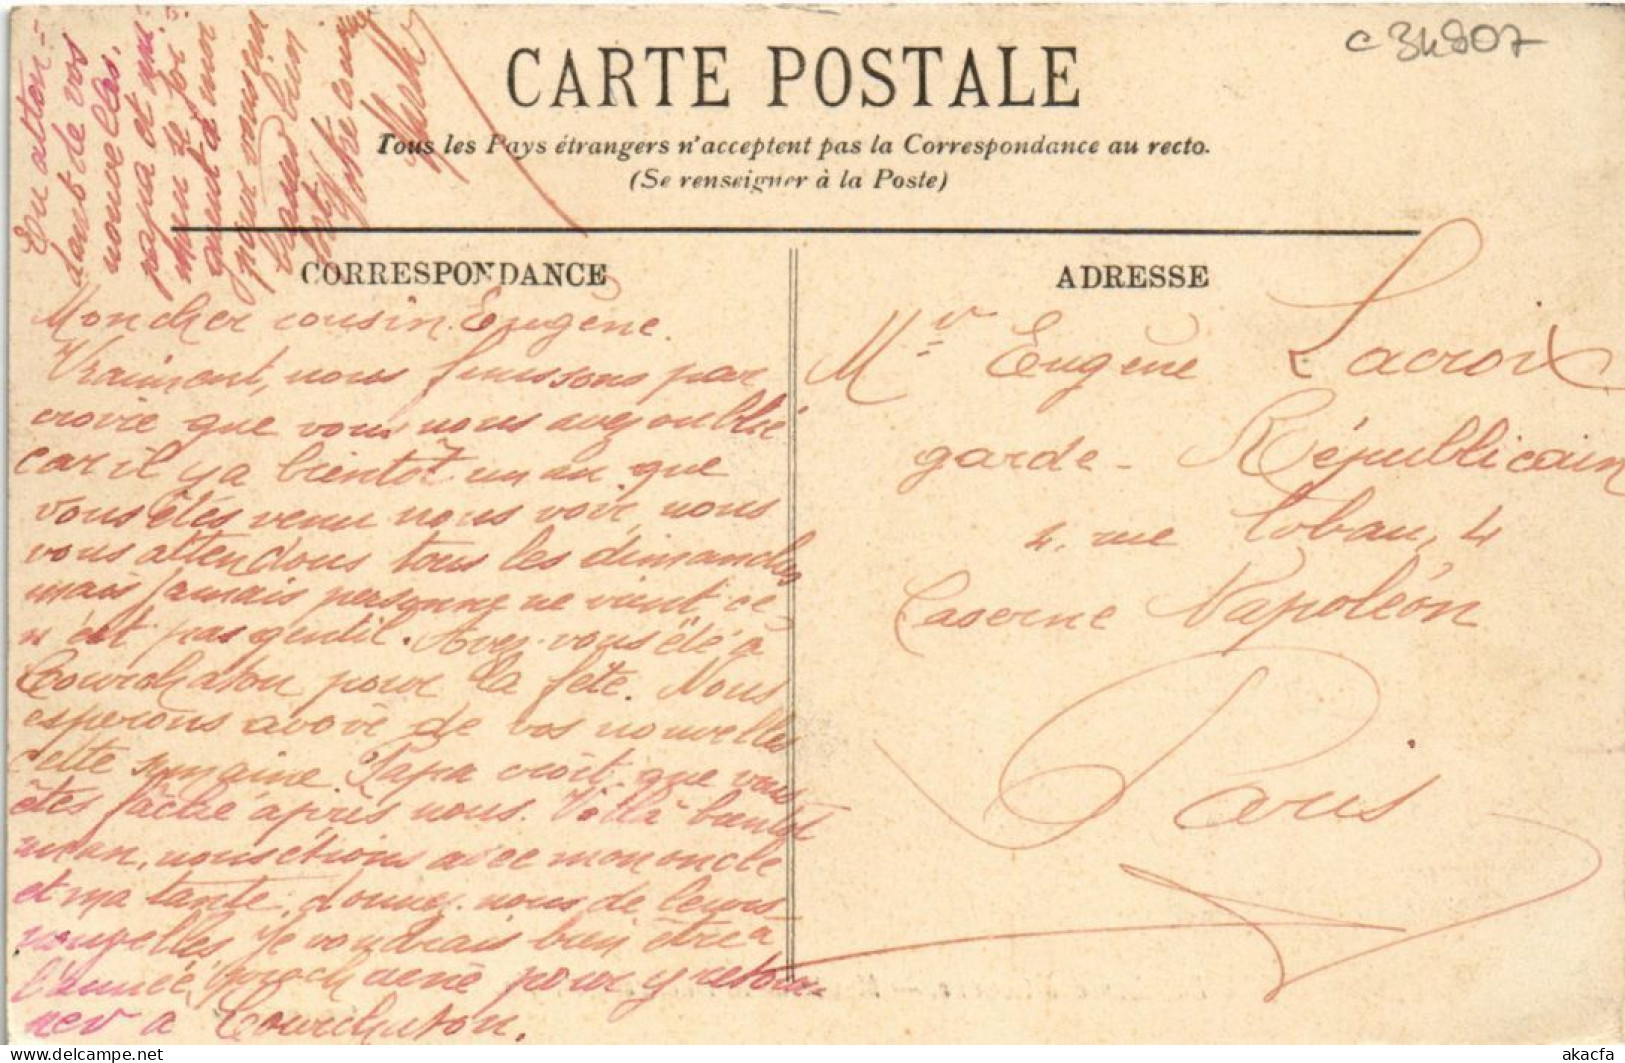 c 34907
CARTE POSTALE
Tous les Pays étrangers n'acceptent pas la Correspondance au recto.
(Se renseigner à la Poste)
CORRESPONDANCE
Mon cher cousin Eugène.
Vraiment, nous finissons par
croire que vous nous avez oublié
car il y a bientôt un an que
vous êtes venu nous voir, nous
vous attendons tous les dimanches
mais jamais personne ne vient ce
n'est pas gentil. Avez-vous été à
Courchaton pour la fête. Nous
esperons avoir de vos nouvelles
cette semaine Papa croit que vous
êtes fâché après nous. Voilà bientôt
un an, nous étions avec mon oncle
et ma tante, donnez-nous de leurs
nouvelles, je voudrais bien être à
l'année prochaine pour y retour-
ner à Courchaton.
En atten-
dant de vos
nouvelles,
papa et
se joi
gnent à moi
pour vous
bien
fort
Votre cousine
ADRESSE
Mr Eugène Lacroix
garde-Républicain
4, rue Lobau, 4
Caserne Napoléon
Paris
akacfa